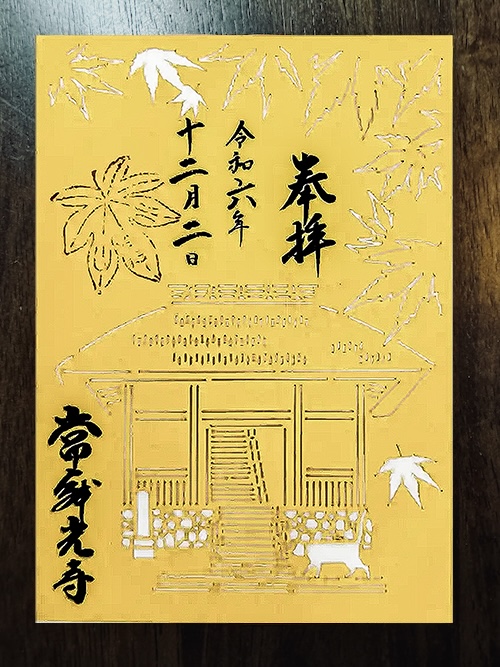 奉拝
令和六年
十二月二日
常寂光寺